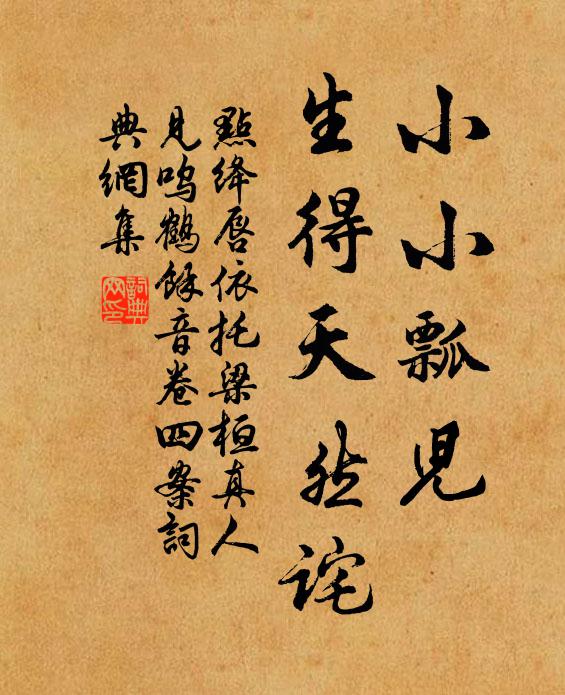 小小瓢児
生得天然詫
點絳唇依托梁桓真人
見鸣鶴餘音卷四案詞
典網集
詞典網印